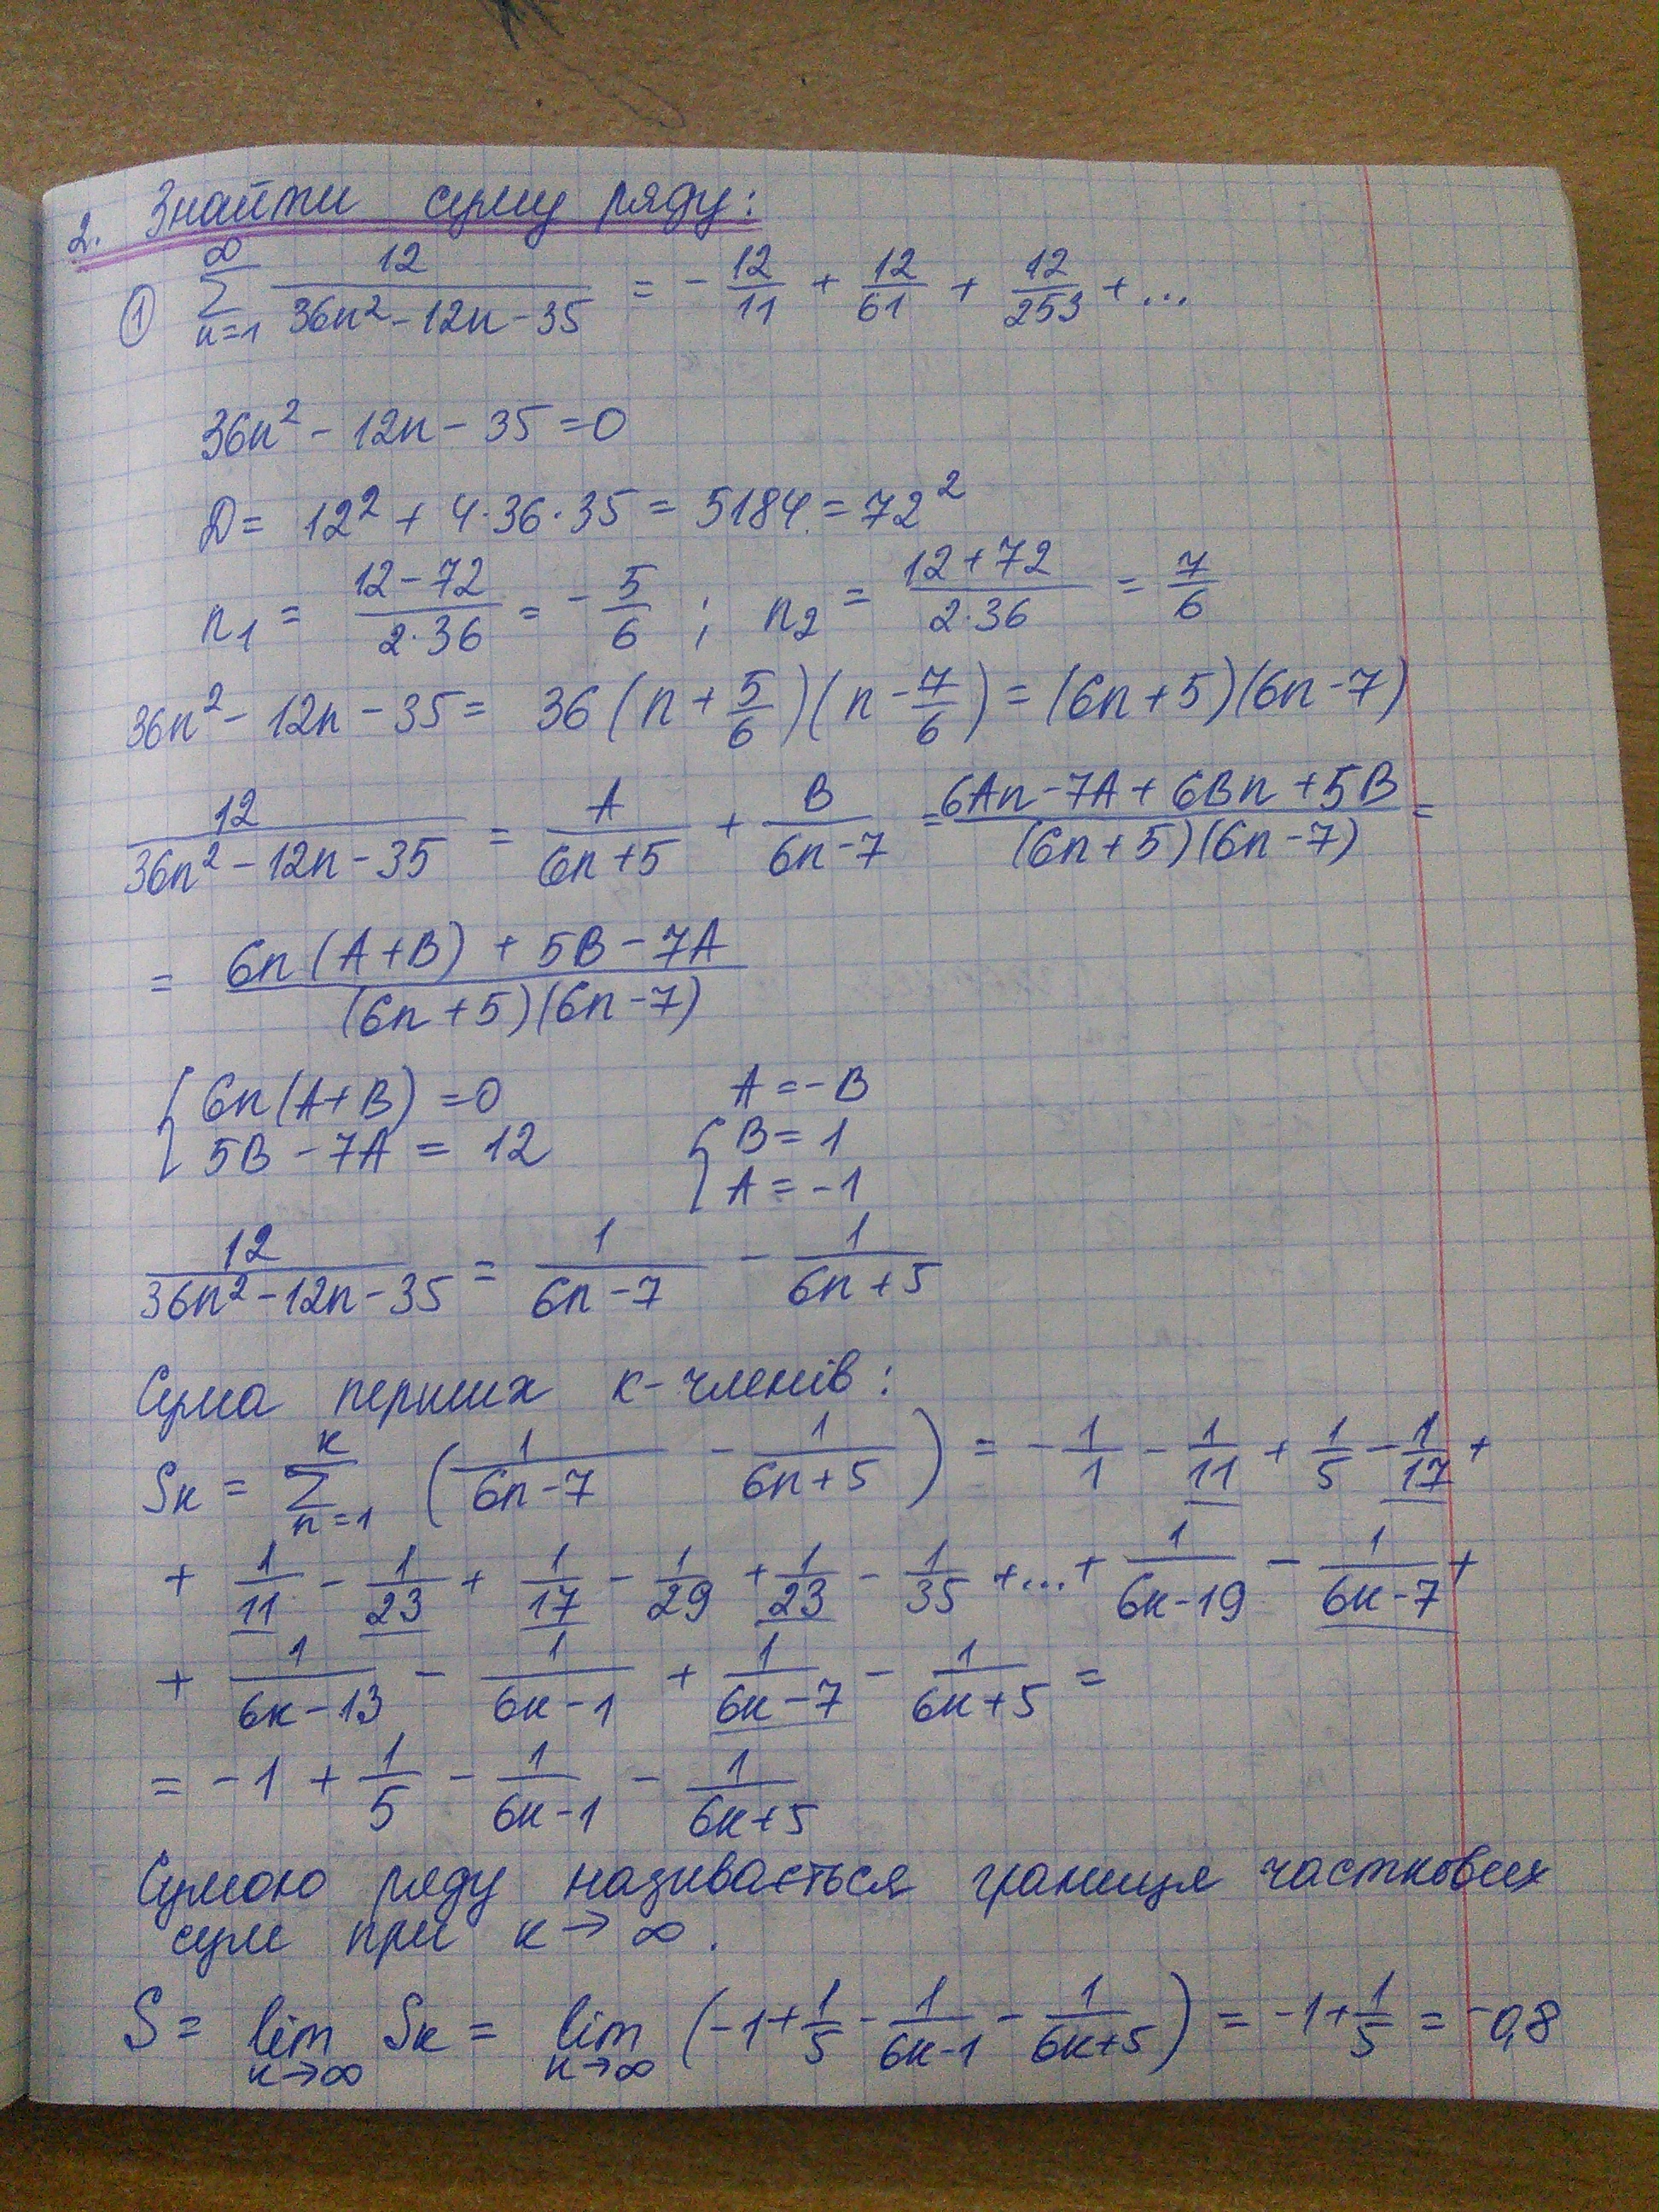 2. Знайти суму ряду:
① ∑_{n=1}^{∞} 12/(36n² - 12n - 35) = - 12/11 + 12/61 + 12/253 + ...
36n² - 12n - 35 = 0
D = 12² + 4·36·35 = 5184 = 72²
n₁ = (12 - 72)/(2·36) = - 5/6 ; n₂ = (12 + 72)/(2·36) = 7/6
36n² - 12n - 35 = 36(n + 5/6)(n - 7/6) = (6n + 5)(6n - 7)
12/(36n² - 12n - 35) = A/(6n + 5) + B/(6n - 7) = (6An - 7A + 6Bn + 5B)/((6n + 5)(6n - 7)) =
= (6n(A + B) + 5B - 7A)/((6n + 5)(6n - 7))
{ 6n(A + B) = 0 A = - B
5B - 7A = 12 { B = 1
A = - 1
12/(36n² - 12n - 35) = 1/(6n - 7) - 1/(6n + 5)
Сума перших к-членів:
Sк = ∑_{n=1}^{к} (1/(6n - 7) - 1/(6n + 5)) = - 1/1 - 1/11 + 1/5 - 1/17 +
+ 1/11 - 1/23 + 1/17 - 1/29 + 1/23 - 1/35 + ... + 1/(6к - 19) - 1/(6к - 7) +
+ 1/(6к - 13) - 1/(6к - 1) + 1/(6к - 7) - 1/(6к + 5) =
= - 1 + 1/5 - 1/(6к - 1) - 1/(6к + 5)
Сумою ряду називається границя часткових
сум при к → ∞.
S = lim_{к→∞} Sк = lim_{к→∞} (- 1 + 1/5 - 1/(6к - 1) - 1/(6к + 5)) = - 1 + 1/5 = - 0,8